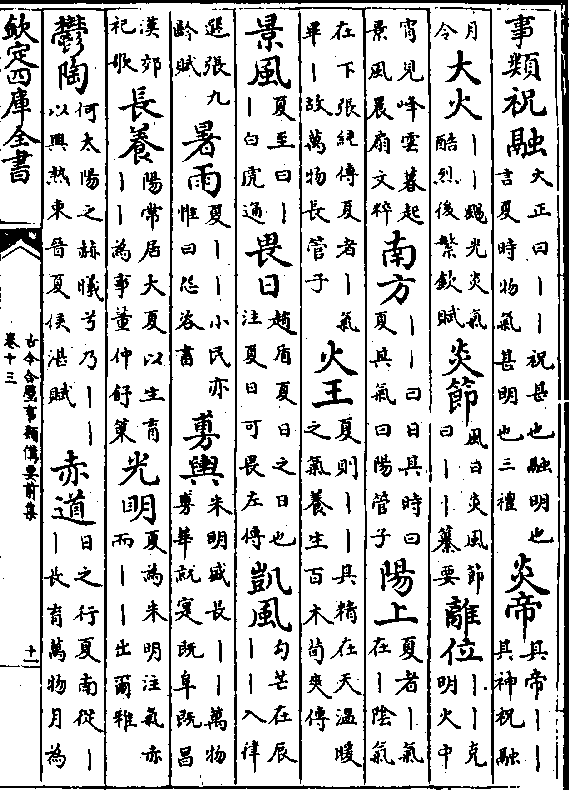 事類祝融大正曰｜｜祝甚也融明也言夏時物氣甚明也三禮炎帝其帝｜｜其神祝融
月今大火｜｜賜光炎氣酷烈後繁欽賦炎節風曰炎風節曰｜｜纂要離位｜｜克明火中
宵見峰雲暮起景風晨扇文粹南方｜｜曰日其時曰夏其氣曰陽管子陽上夏者｜氣在｜陰氣
在下張純傳夏者｜氣畢｜故萬物長管子火王夏則｜｜其精在天溫暖之氣養生百木荀爽傳
景風夏至曰｜｜白虎通畏日趙盾夏日之日也注夏日可畏左傳凱風勾芒在辰｜｜入律
選張九齡賦暑雨夏｜｜小民亦惟曰怨咨書旉與朱明盛長｜｜萬物旉華就寔既阜既昌
漢郊祀歌長養陽常居大夏以生育｜｜為事董仲舒策光明夏為朱明注氣赤而｜｜出爾雅
鬱陶何太陽之赫曦兮乃｜｜以興熱東晉夏侯湛賦赤道日之行夏南從｜｜長育萬物月為
欽定四庫全書
古今合璧事類備要前集
卷十三
十二